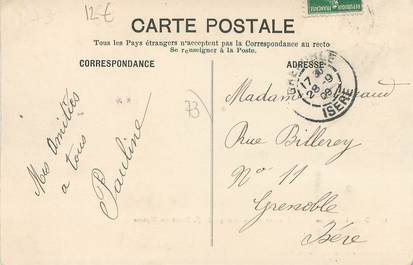 12-€
RÉPUBLIQUE FRANÇAISE
CARTE POSTALE
Tous les Pays étrangers n'acceptent pas la Correspondance au recto
Se renseigner à la Poste.
CORRESPONDANCE
Mes amitiés
a tous
Pauline
73
ADRESSE
GRENOBLE
17 30
28-9
08
ISÈRE
Madame
Rue Billerey
No 11
Grenoble
Isère